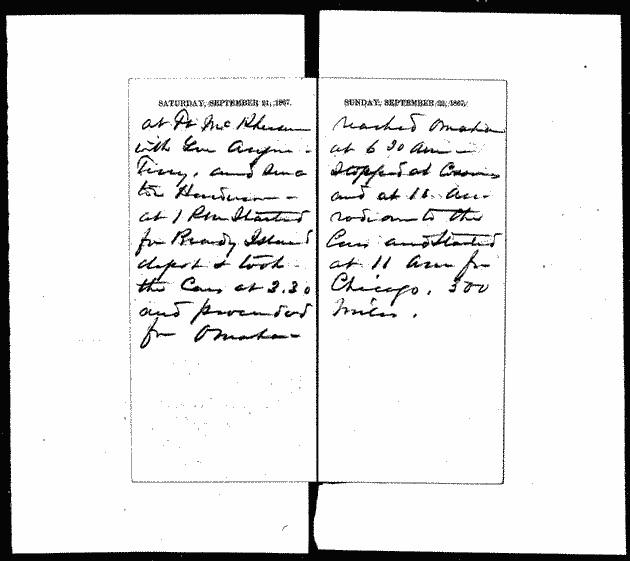 SATURDAY, SEPTEMBER 21, 1867.
at Ft McPherson
with Gen Augur -
Terry, and Sena
tor Henderson -
at 1 P.m. Started
for Brady Island
depot & took
the Cars at 3.30
and proceeded
for Omaha -
SUNDAY, SEPTEMBER 22, 1867.
reached Omaha
at 6 30 Am -
Stopped at
and at Am
rode on to the
Cars and Started
at 11 Am for
Chicago. 500
Miles.